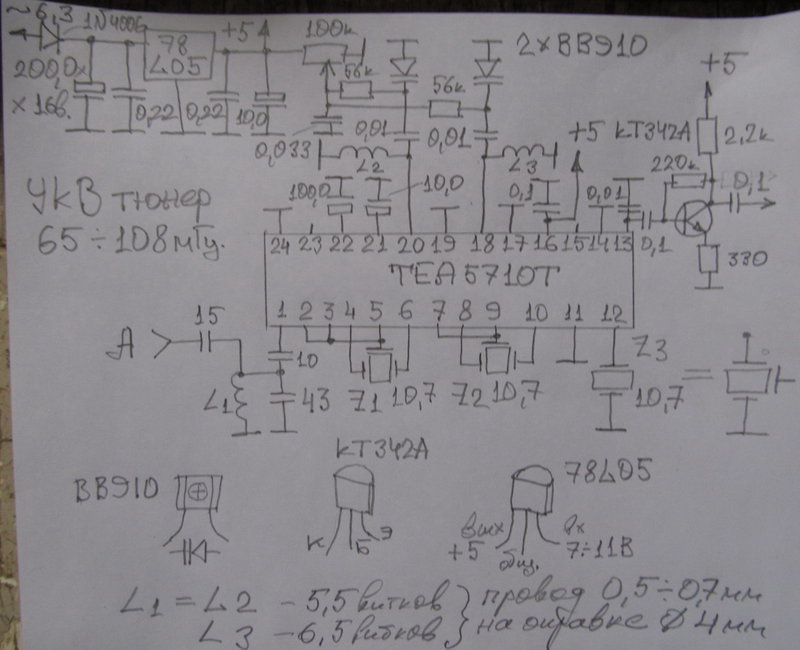 ~6,3 1N4006 +5 100к
78
L05
200,0х
х 16в.
0,22 0,22 10,0
56к 56к
2×BB910
0,033 0,01 0,01
L2 L3
+5 КТ342А
+5
2,2к
220к
0,1
330
УКВ тюнер
65÷108мГц.
100,0 10,0 0,1 0,01 0,1
24 23 22 21 20 19 18 17 16 15 14 13
TEA5710T
1 2 3 4 5 6 7 8 9 10 11 12
A 15
10
L1 43
Z1 10,7 Z2 10,7
Z3
10,7
=
КТ342А
BB910
78L05
К Б Э
вых вх
+5 общ. 7÷11В
L1 = L2 - 5,5 витков } провод 0,5÷0,7мм
L3 - 6,5 витков } на оправке Ø 4мм